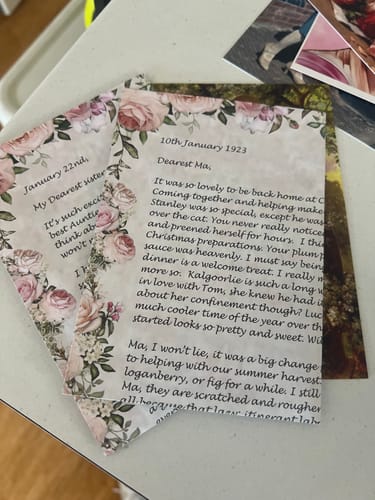 January 22nd,
My Dearest sister
It's such exc
best Auntie
think abou
won't r
I
10th January 1923
Dearest Ma,
It was so lovely to be back home at C
Coming together and helping make
Stanley was so special, except he was
over the cat. You never really notice
and preened herself for hours. I thi
Christmas preparations. Your plum p
sauce was heavenly. I must say bein
dinner is a welcome treat. I really n
more so. Kalgoorlie is such a long w
in love with Tom, she knew he had i
about her confinement though? Luc
much cooler time of the year over th
started looks so pretty and sweet. Wi
Ma, I won't lie, it was a big change
to helping with our summer harvest
loganberry, or fig for a while. I still
Ma, they are scratched and rougher
all because that lazy itinerant lab